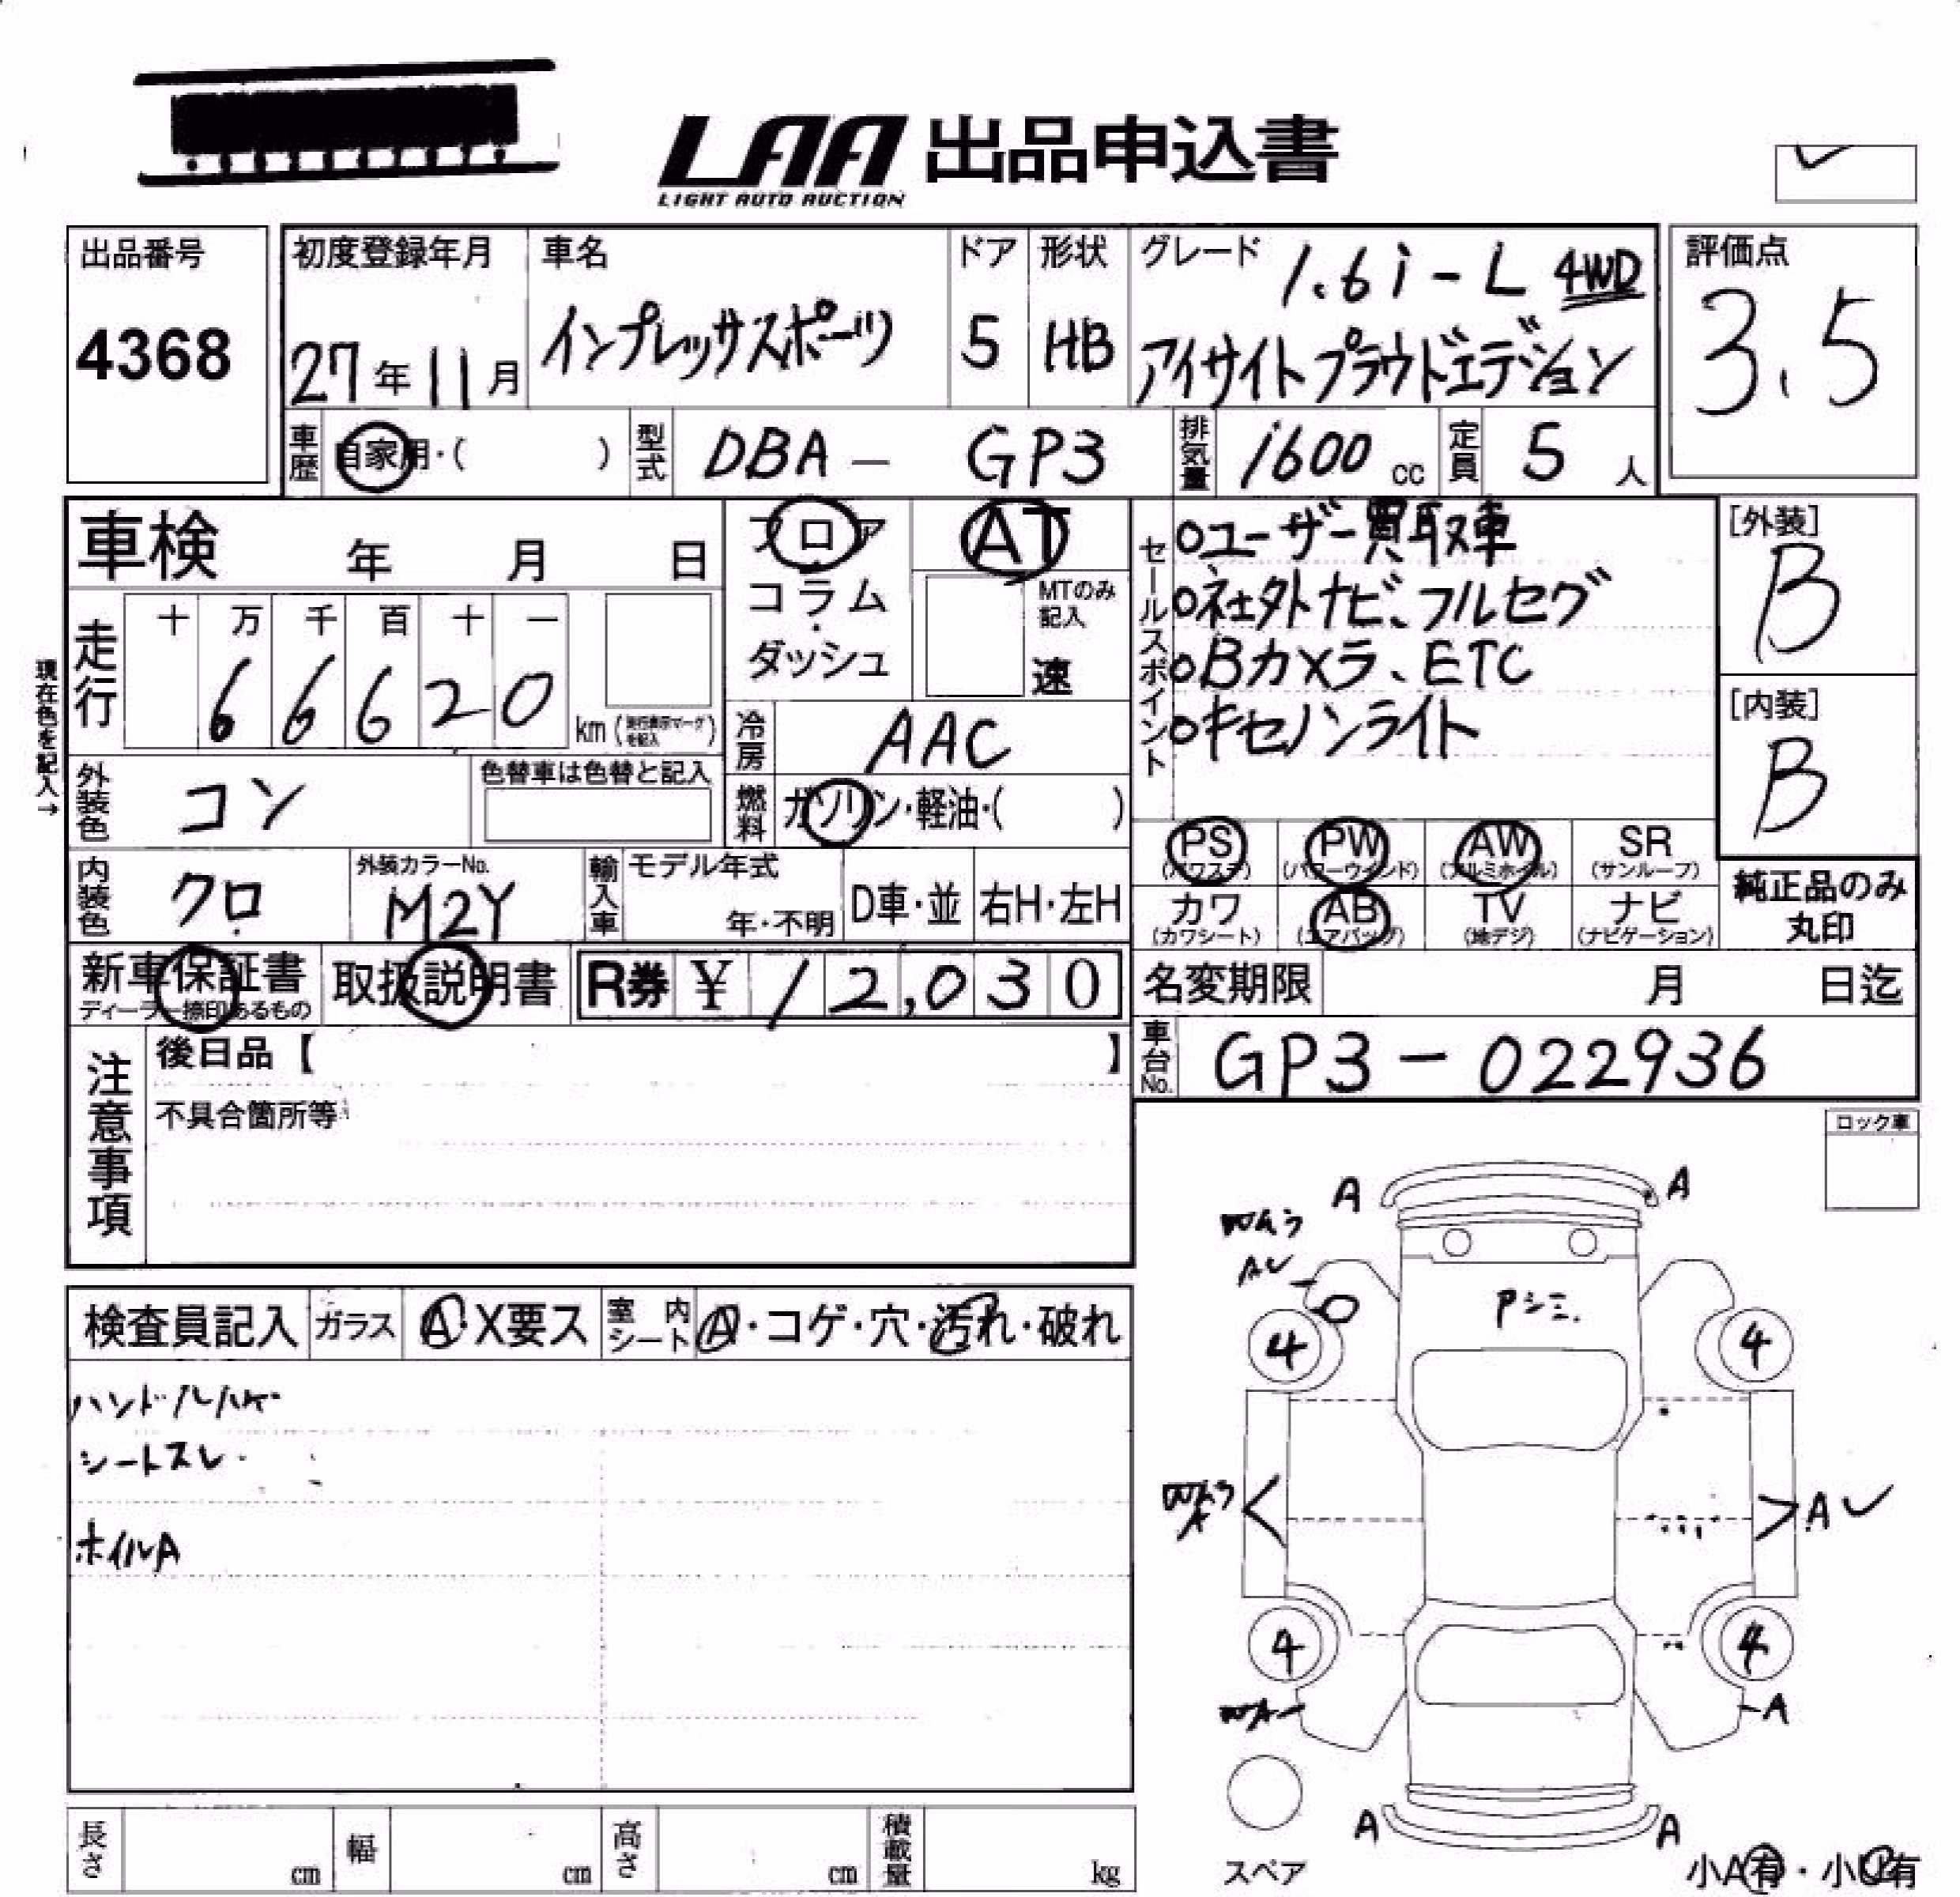 LAA 出品申込書
LIGHT AUTO AUCTION
出品番号
4368
初度登録年月
27年11月
車名
インプレッサスポーツ
ドア
5
形状
HB
グレード
1.6i-L 4WD
アイサイトプラウドエディション
評価点
3.5
車歴
自家用・( )
型式
DBA - GP3
排気量
1600 cc
定員
5 人
車検 年 月 日
フロア
コラム
ダッシュ
AT
MTのみ
記入
速
セールスポイント
○ユーザー買取車
○社外ナビ、フルセグ
○Bカメラ、ETC
○キセノンライト
[外装]
B
[内装]
B
現在色を記入→
走行
十 万 千 百 十 一
6 6 6 2 0
km
冷房
AAC
外装色
コン
色替車は色替と記入
燃料
ガソリン・軽油・( )
PS
(パワステ)
PW
(パワーウインド)
AW
(アルミホイル)
SR
(サンルーフ)
カワ
(カワシート)
AB
(エアバッグ)
TV
(地デジ)
ナビ
(ナビゲーション)
純正品のみ
丸印
内装色
クロ
外装カラーNo.
M2Y
輸入車
モデル年式
年・不明
D車・並
右H・左H
新車保証書
ディーラー捺印あるもの
取扱説明書
R券 ¥ 12,030
名変期限 月 日迄
車台No.
GP3-022936
注意事項
後日品【 】
不具合箇所等
ロック車
検査員記入
ガラス
A・X要ス
室内シート
A・コゲ・穴・汚れ・破れ
ハンドルハゲ
シートスレ
ホイルA
A
A
Pシミ
4
4
A
4
4
A
A
A
スペア
小A有・小U有
長さ
cm
幅
cm
高さ
cm
積載量
kg